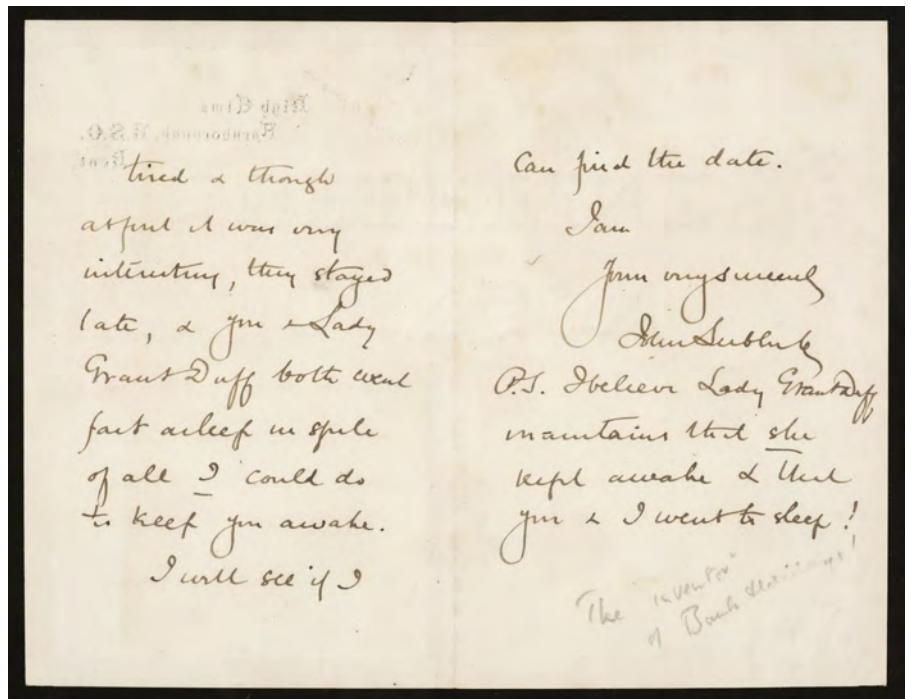 High Elms
Farnborough, R.S.O.
Kent
tired & though
at first it was very
interesting, they stayed
late, & you & Lady
Grant Duff both went
fast asleep in spite
of all I could do
to keep you awake.
I will see if I
can find the date.
I am
Yours very sincerely
John Lubbock
P.S. I believe Lady Grant Duff
maintains that she
kept awake & that
you & I went to sleep!
The "inventor"
of Bank Holidays!